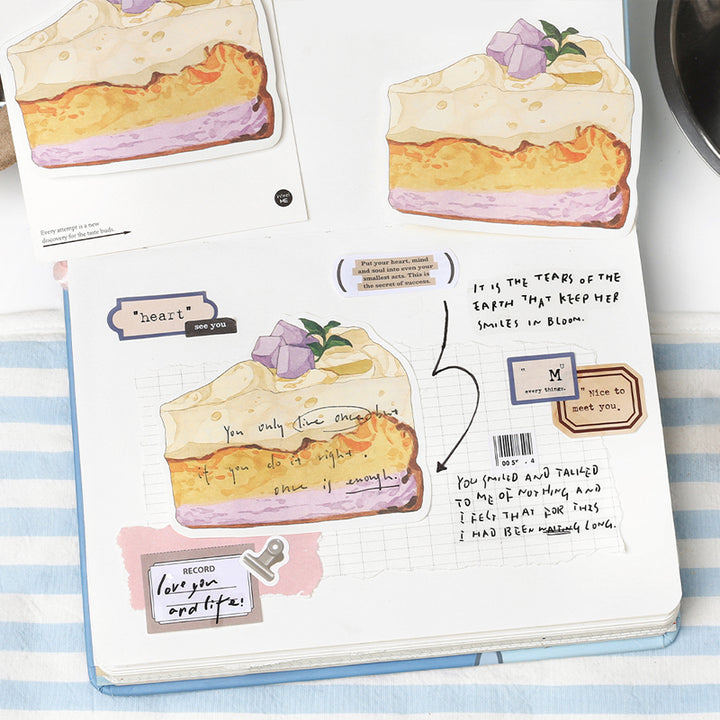 Every attempt is a new
discovery for the taste buds.
Put your heart, mind
and soul into even your
smallest acts. This is
the secret of success.
IT IS THE TEARS OF THE
EARTH THAT KEEP HER
SMILES IN BLOOM.
"heart"
see you
" M "
every things.
"Nice to
meet you.
You only live once, but
if you do it right.
once is enough.
YOU SMILED AND TALKED
TO ME OF NOTHING AND
I FELT THAT FOR THIS
I HAD BEEN WAITING LONG.
RECORD
love you
and life!